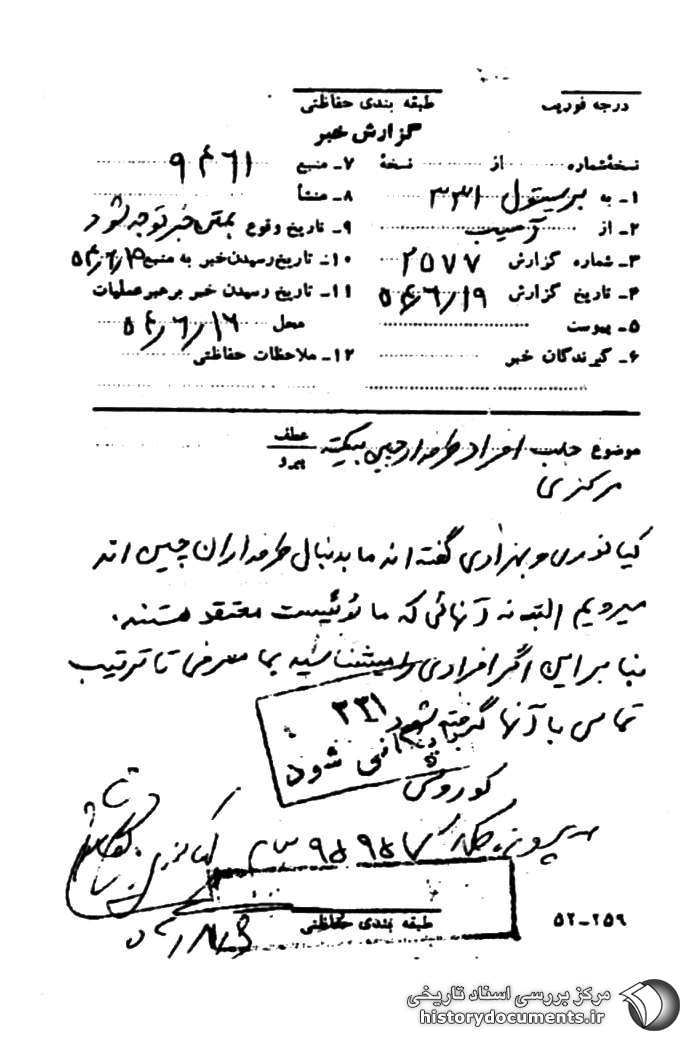 درجه فوریت
طبقه بندی حفاظتی
گزارش خبر
نسخهٔ شماره از نسخهٔ
۱ـ به پرسیتول ۳۳۱
۲ـ از آسیب
۳ـ شماره گزارش ۲۵۷۷
۴ـ تاریخ گزارش ۵۴/۶/۱۹
۵ـ پیوست
۶ـ گیرندگان خبر
۷ـ منبع ۹۴۶۱
۸ـ منشأ
۹ـ تاریخ وقوع بمتن خبر توجه شود
۱۰ـ تاریخ رسیدن خبر به منبع
۱۱ـ تاریخ رسیدن خبر برهبر عملیات
محل ۵۴/۶/۱۶
۱۲ـ ملاحظات حفاظتی
موضوع جلب افراد طرفدار چین کمیته عطف
پیرو
مرکزی
کیانوری و بهزادی گفته اند ما بدنبال طرفداران چین اند
میرویم البته نه آنهائی که مائوئیست معتقد هستند.
بنابراین اگر افرادی را میشناسید بما معرفی تا ترتیب
تماسی با آنها گرفته شود ۳۳۱
شود
کوروش
۵۲ـ۲۵۹
طبقه بندی حفاظتی
مرکز بررسی اسناد تاریخی
historydocuments.ir